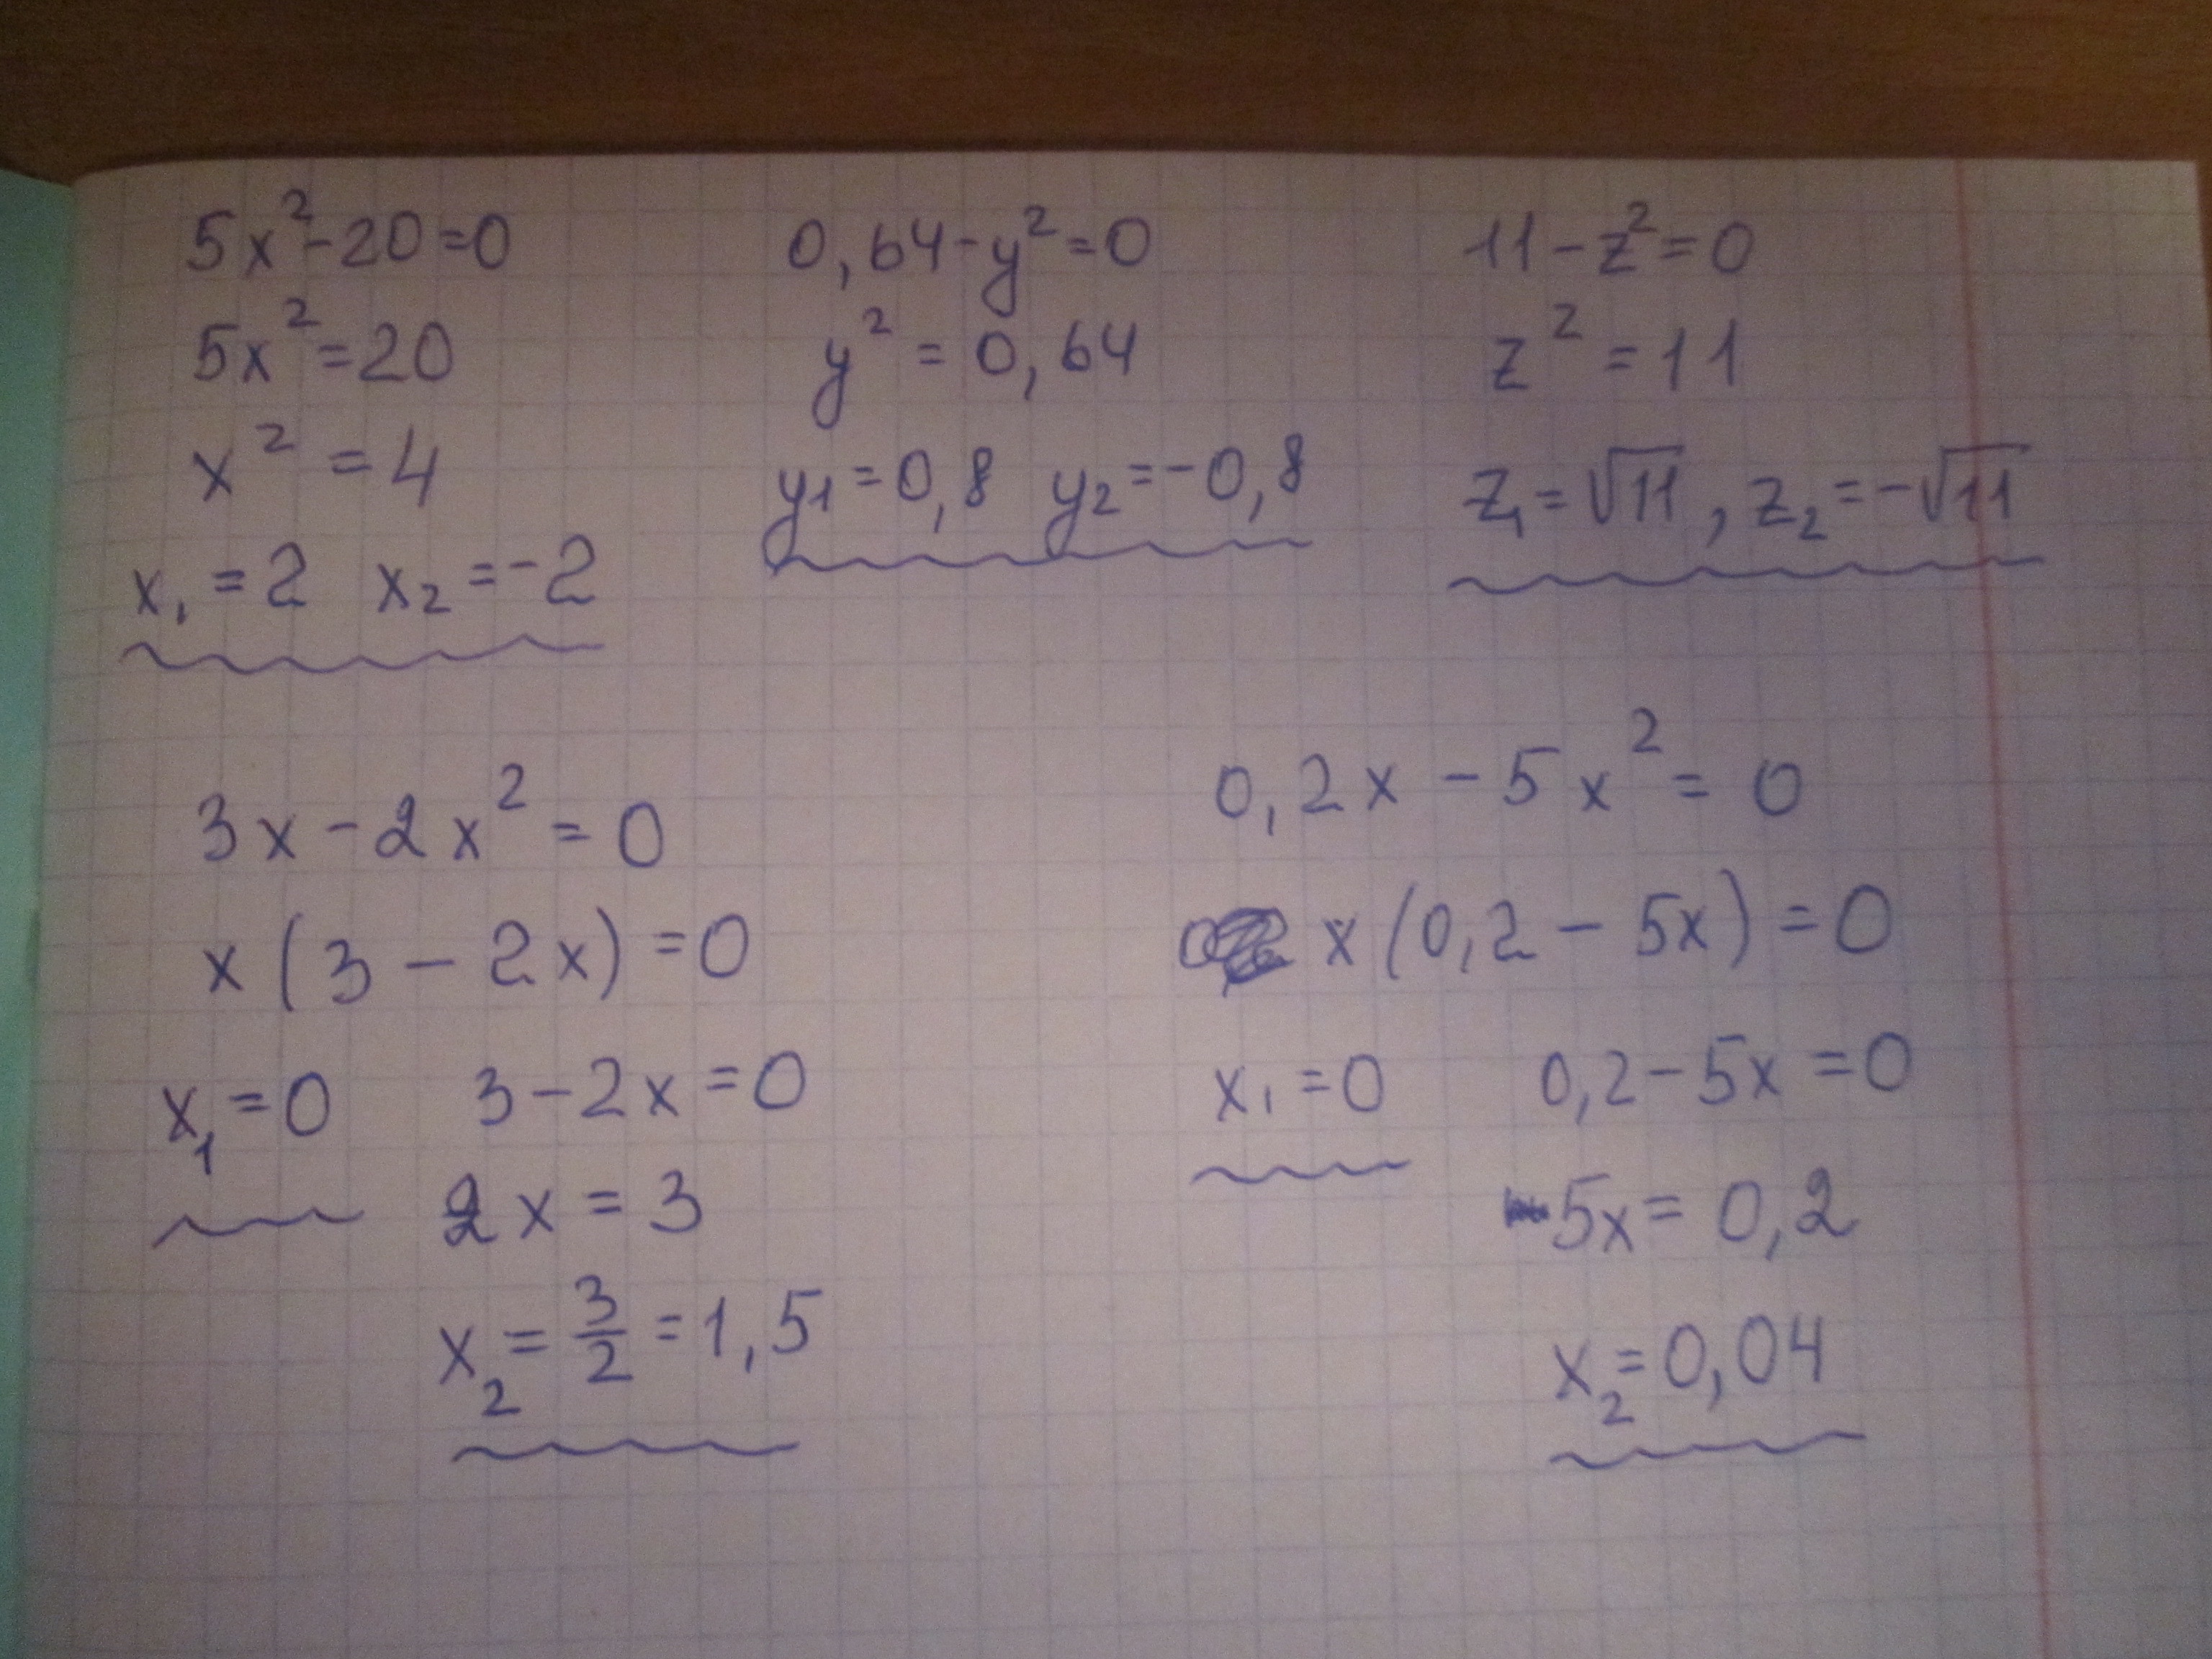 5x²-20=0
5x²=20
x²=4
x₁=2 x₂=-2
0,64-y²=0
y²=0,64
y₁=0,8 y₂=-0,8
11-z²=0
z²=11
z₁=√11, z₂=-√11
3x-2x²=0
x(3-2x)=0
x₁=0 3-2x=0
2x=3
x₂=3/2=1,5
0,2x-5x²=0
x(0,2-5x)=0
x₁=0 0,2-5x=0
5x=0,2
x₂=0,04